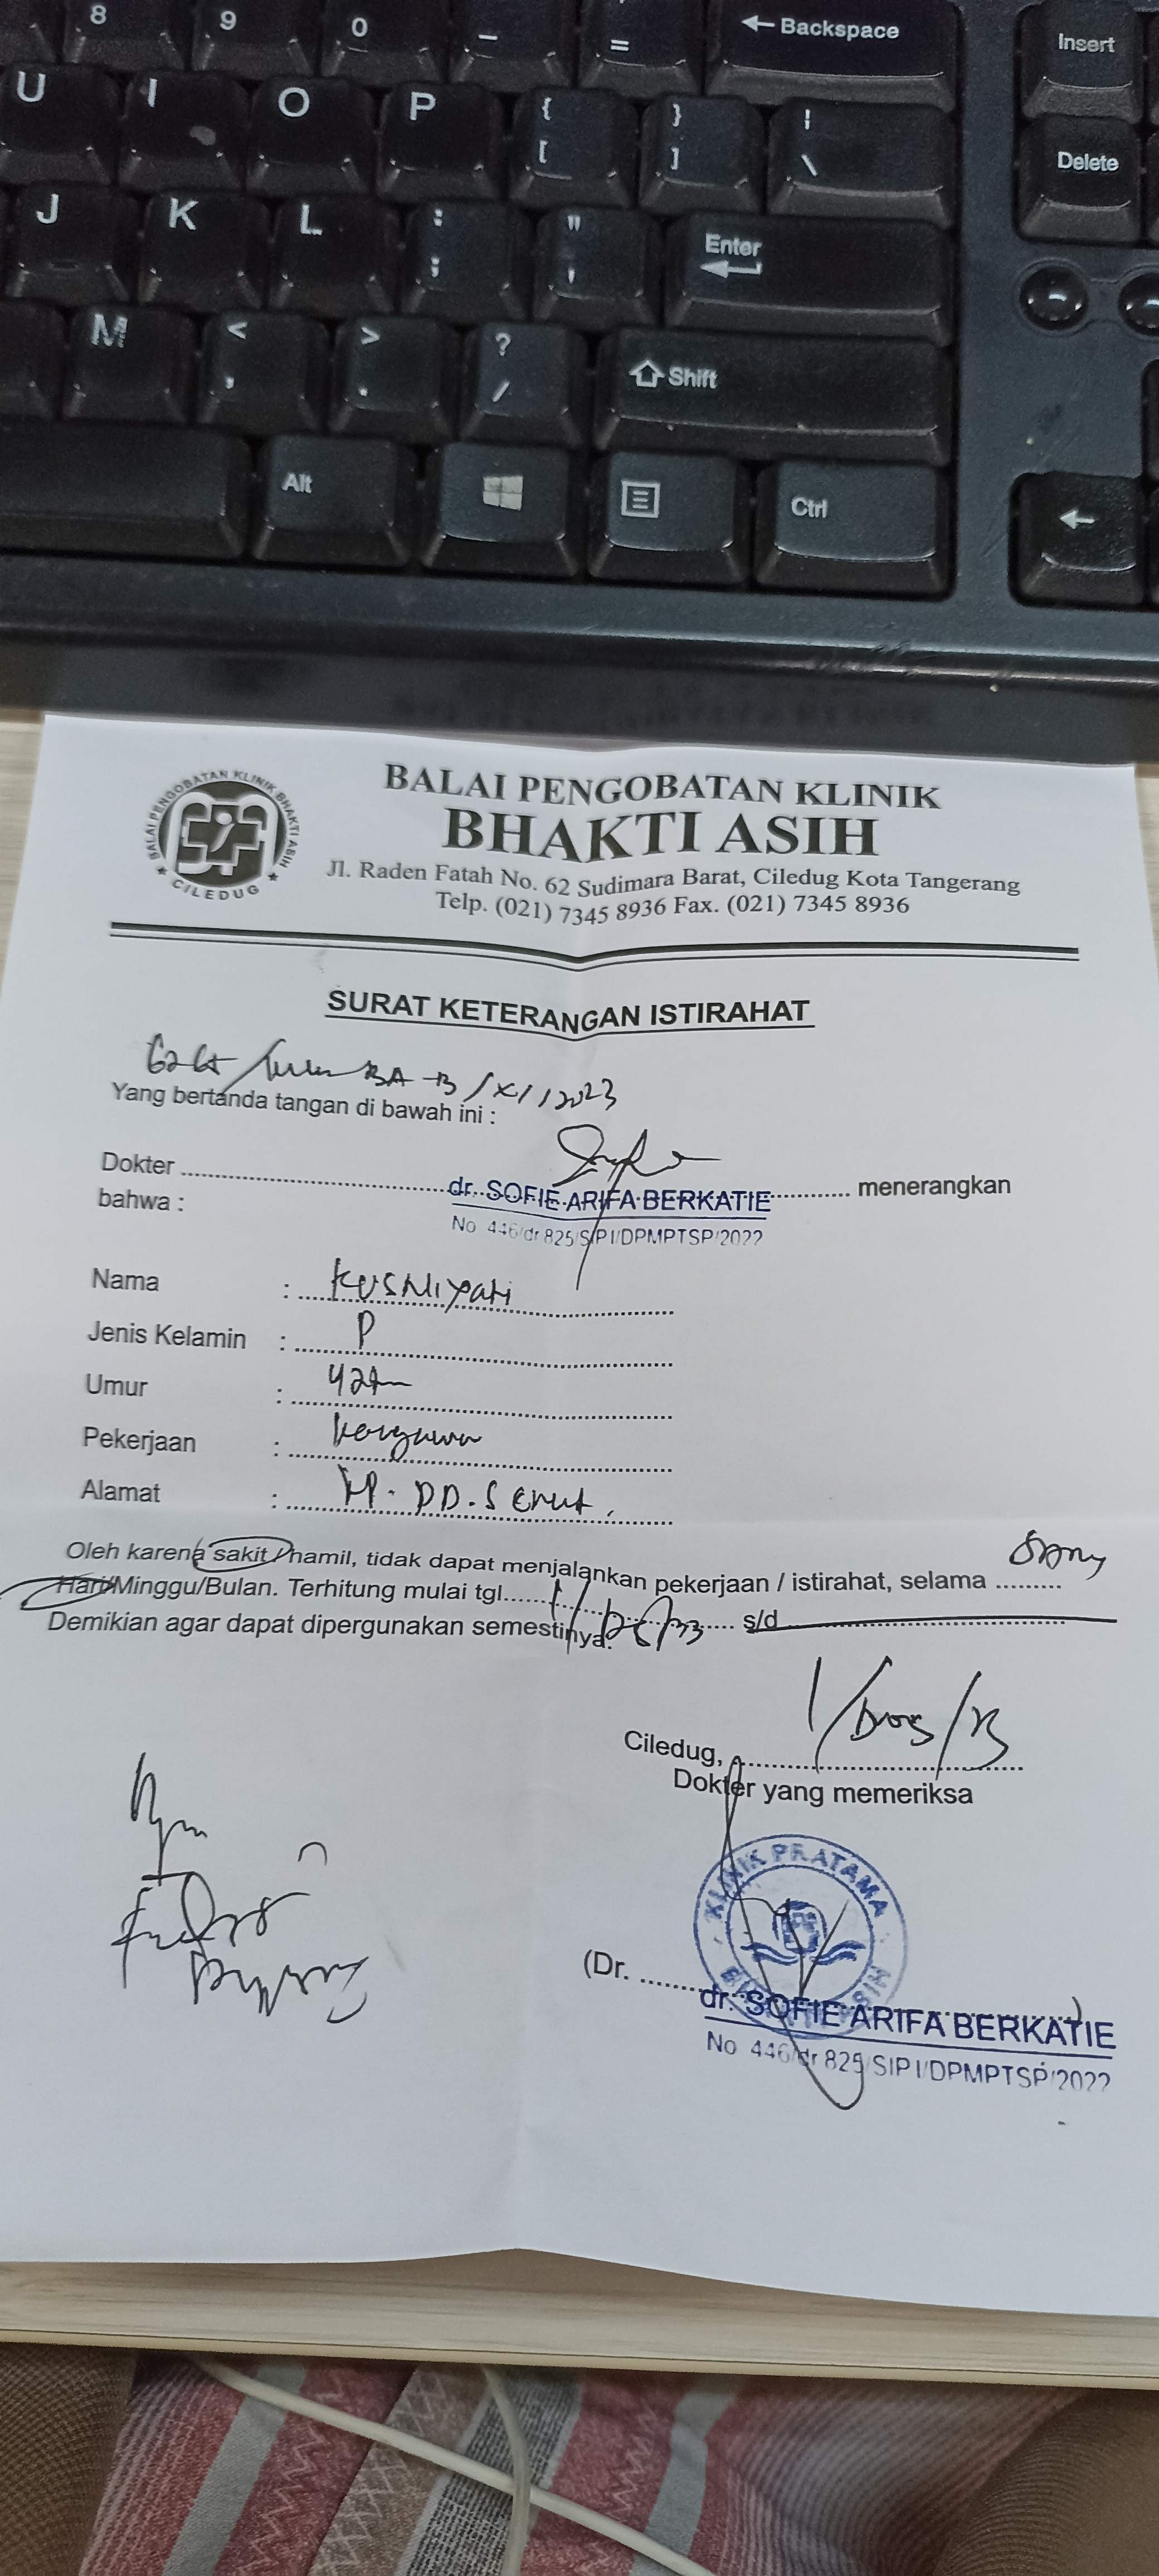 8 9 0 - = ← Backspace Insert
U I O P { [ } ] | \ Delete
J K L : ; " ' Enter
M < , > . ? / Shift
Alt Ctrl ←
BALAI PENGOBATAN KLINIK BHAKTI ASIH
★ CILEDUG ★
BALAI PENGOBATAN KLINIK
BHAKTI ASIH
Jl. Raden Fatah No. 62 Sudimara Barat, Ciledug Kota Tangerang
Telp. (021) 7345 8936 Fax. (021) 7345 8936
SURAT KETERANGAN ISTIRAHAT
BA-B/XI/2023
Yang bertanda tangan di bawah ini :
Dokter dr. SOFIE ARIFA BERKATIE menerangkan
No 446/dr 825/SIP I/DPMPTSP/2022
bahwa :
Nama : Kusniyati
Jenis Kelamin : P
Umur : 42
Pekerjaan :
Alamat :
Oleh karena sakit / hamil, tidak dapat menjalankan pekerjaan / istirahat, selama
Hari/Minggu/Bulan. Terhitung mulai tgl. s/d
Demikian agar dapat dipergunakan semestinya.
Ciledug,
Dokter yang memeriksa
KLINIK PRATAMA
(Dr. )
dr. SOFIE ARIFA BERKATIE
No 446/dr 825/SIP I/DPMPTSP/2022